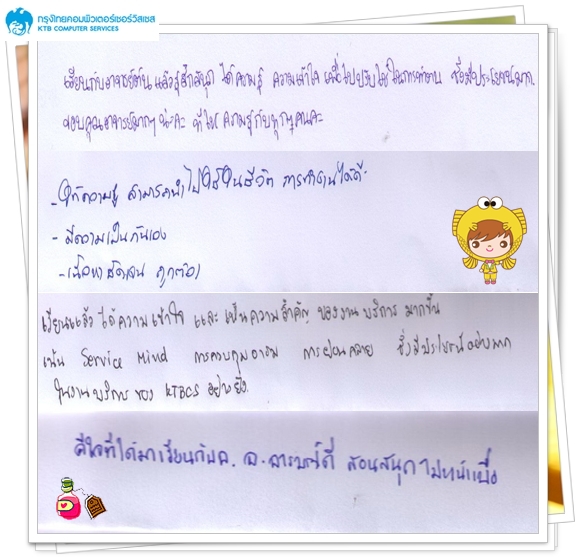 กรุงไทยคอมพิวเตอร์เซอร์วิสเซส
KTB COMPUTER SERVICES
เรียนกับอาจารย์ต้น แล้วรู้สึกสนุก ได้ความรู้ ความเข้าใจ เพื่อไปปรับใช้ในการทำงาน ซึ่งมีประโยชน์มาก
ขอบคุณอาจารย์มากๆ นะคะ ที่ให้ความรู้กับทุกๆ คนค่ะ
- ให้ความรู้ สามารถนำไปใช้ในชีวิต การทำงานได้ดี
- มีความเป็นกันเอง
- เนื้อหาชัดเจน ถูกต้อง
เรียนแล้ว ได้ความเข้าใจ และ เห็นความสำคัญ ของงานบริการ มากขึ้น
เน้น Service Mind การควบคุมอารมณ์ การผ่อนคลาย ซึ่งมีประโยชน์อย่างมาก
ในงานบริการ ของ KTBCS อย่างยิ่ง
ดีใจที่ได้มาเรียนกับอ. อ.อารมณ์ดี สอนสนุก ไม่น่าเบื่อ